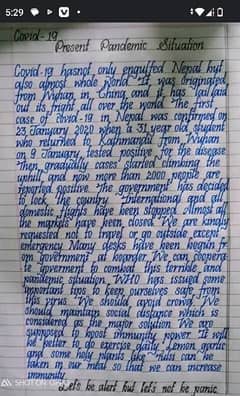 5:29
Covid-19
Present Pandemic Situation
Covid-19 hasnot only engulfed Nepal but
also almost whole world. It was originated
from Wuhan in China and it has laid
out its fright all over the world. The first
case of Covid-19 in Nepal was confirmed on
23 January 2020 when a 31 year old student
who returned to Kathmandu from Wuhan
on 9 January, tested positive for the disease
Then gradually cases started climbing the
uphill and now more than 2000 people are
reported positive. The government has decided
to lock the country. International and all
domestic flights have been stopped. Almost all
the markets have been closed. We are kindly
requested not to travel or go outside except
emergency. Many desks have been begun fr
om government at boarder. We can coopera-
te goverment to combat this terrible and
pandemic situation. WHO has issued some
important tips to keep ourselves safe from
this virus. We should avoid crowd. We
should maintain social distance which is
considered as the major solution. We are
supposed to boost immunity power. It will
be better to do exercise daily. Lemon, garlic
and some holy plants like can be
taken in our meal so that we can increase
immunity.
Let's be alert but let's not be panic.
SHOT ON